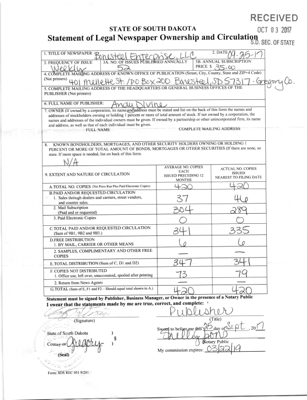 RECEIVED
OCT 03 2017
S.D. SEC. OF STATE
STATE OF SOUTH DAKOTA
Statement of Legal Newspaper Ownership and Circulation
1. TITLE OF NEWSPAPER Bonesteel Enterprise LLC 2. DATE 9-25-17
3. FREQUENCY OF ISSUE Weekly 3A. NO. OF ISSUES PUBLISHED ANNUALLY 52 3B. ANNUAL SUBSCRIPTION PRICE $ 35.00
4. COMPLETE MAILING ADDRESS OF KNOWN OFFICE OF PUBLICATION (Street, City, County, State and ZIP+4 Code) (Not printers)
401 Mellette St. / PO Box 200 Bonesteel, SD 57317 Gregory Co.
5. COMPLETE MAILING ADDRESS OF THE HEADQUARTERS OR GENERAL BUSINESS OFFICES OF THE PUBLISHER (Not printers)
6. FULL NAME OF PUBLISHER: Andy Divine
7. OWNER (If owned by a corporation, its name and address must be stated and also the names and addresses of stockholders owning or holding 1 percent or more of total amount of stock. If not owned by a corporation, the names and addresses of the individual owners must be given. If owned by a partnership or other unincorporated firm, its name and address, as well as that of each individual must be given.)
FULL NAME COMPLETE MAILING ADDRESS
8. KNOWN BONDHOLDERS, MORTGAGES, AND OTHER SECURITY HOLDERS OWNING OR HOLDING 1 PERCENT OR MORE OF TOTAL AMOUNT OF BONDS, MORTGAGES OR OTHER SECURITIES (If there are none, so state. If more space is needed, list on back of this form)
N/A
9. EXTENT AND NATURE OF CIRCULATION AVERAGE NO. COPIES EACH ISSUED PRECEDING 12 MONTHS ACTUAL NO. COPIES ISSUED NEAREST TO FILING DATE
A. TOTAL NO. COPIES 420 420
B. PAID AND/OR REQUESTED CIRCULATION
1. Sales through dealers and carriers, street vendors, and counter sales. 37 46
2. Mail Subscription (Paid and or requested) 304 289
3. Paid Electronic Copies 0 0
C. TOTAL PAID AND/OR REQUESTED CIRCULATION (Sum of 9B1, 9B2 and 9B3) 341 335
D. FREE DISTRIBUTION
1. BY MAIL, CARRIER OR OTHER MEANS 6 6
2. SAMPLES, COMPLIMENTARY AND OTHER FREE COPIES
E. TOTAL DISTRIBUTION (Sum of C, D1 and D2) 347 341
F. COPIES NOT DISTRIBUTED
1. Office use, left over, unaccounted, spoiled after printing 73 79
2. Return from News Agents
G. TOTAL (Sum of E, F1 and F2 - Should equal total shown in A) 420 420
Statement must be signed by Publisher, Business Manager, or Owner in the presence of a Notary Public
I swear that the statements made by me are true, correct, and complete:
Publisher
(Signature) (Title)
State of South Dakota
County of Gregory
(Seal)
Signed to before me this 25 day of Sept. 2017
Notary Public
My commission expires 03/22/19